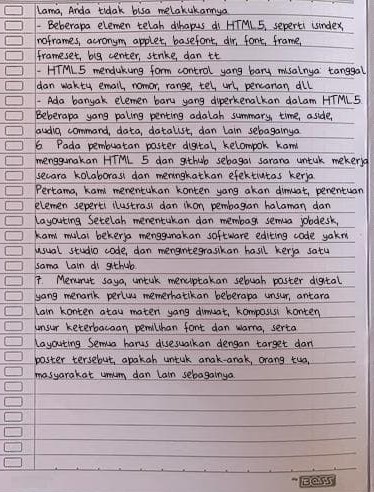 lama, Anda tidak bisa melakukannya
- Beberapa elemen telah dihapus di HTML5, seperti isindex,
noframes, acronym, applet, basefont, dir, font, frame,
frameset, big, center, strike, dan tt
- HTML5 mendukung form control yang baru misalnya tanggal
dan waktu, email, nomor, range, tel, url, pencarian, dll
- Ada banyak elemen baru yang diperkenalkan dalam HTML5.
Beberapa yang paling penting adalah summary, time, aside,
audio, command, data, datalist, dan lain sebagainya
6 Pada pembuatan poster digital, kelompok kami
menggunakan HTML 5 dan github sebagai sarana untuk mekerja
secara kolaborasi dan meningkatkan efektivitas kerja
Pertama, kami menentukan konten yang akan dimuat, penentuan
elemen seperti ilustrasi dan ikon, pembagian halaman, dan
layouting Setelah menentukan dan membagi semua jobdesk,
kami mulai bekerja menggunakan software editing code yakni
visual studio code, dan mengintegrasikan hasil kerja satu
sama lain di github.
7. Menurut saya, untuk menciptakan sebuah poster digital
yang menarik perluu memerhatikan beberapa unsur, antara
lain konten atau materi yang dimuat, komposisi konten,
unsur keterbacaan, pemilihan font dan warna, serta
layouting Semua harus disesuaikan dengan target dari
poster tersebut, apakah untuk anak-anak, orang tua,
masyarakat umum, dan lain sebagainya
BOSS